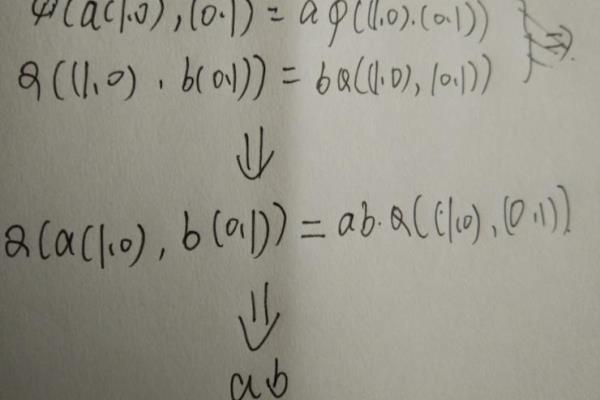 φ(a(1,0),(0,1)) = a φ((1,0).(0,1))
φ((1,0), b(0,1)) = b φ((1,0), (0,1))
⇓
φ(a(1,0), b(0,1)) = ab·φ((1,0),(0,1))
⇓
ab